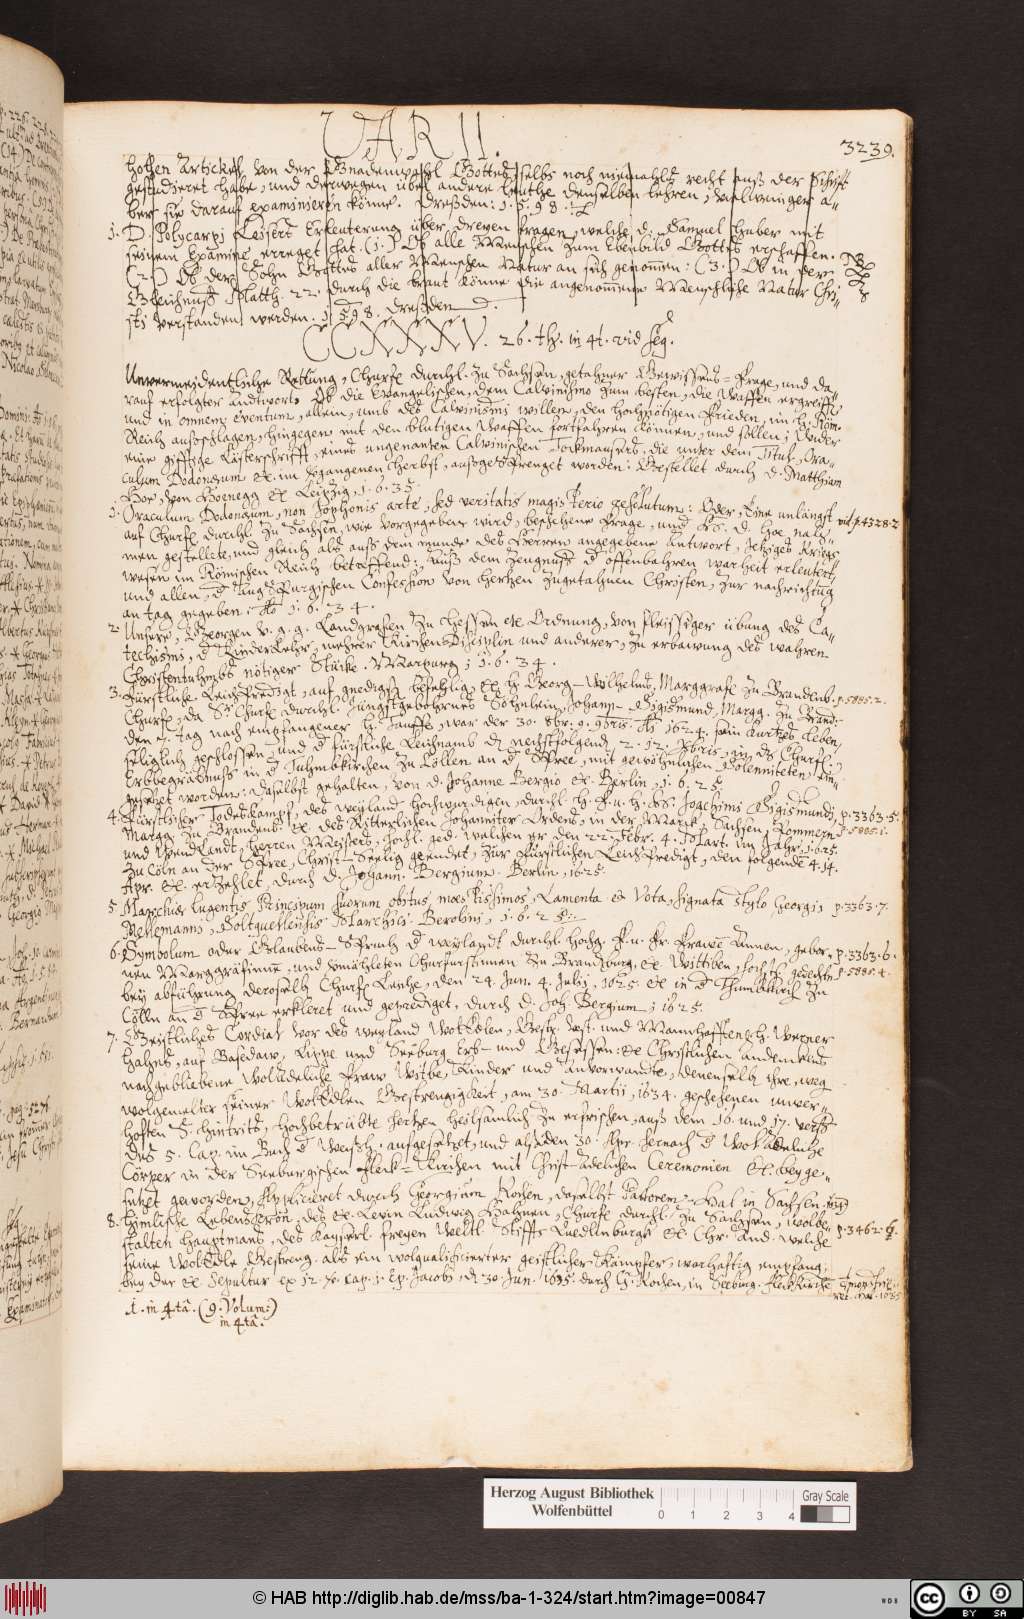 VARII.
3239.
hohen Artickel, von der Gnadenwahl Gottes selbs noch niemahls recht auß der Schrifft
gestudieret habe, und derwegen übel andere Leuthe denselben lehren, vielweniger a-
ber sie darauf examinieren könne. Dreßden: 1.5.98.
1. D. Polycarpi Leisers Erleuterung über dreyen fragen, welche d. Samuel Huber mit
seinem Examine erreget hat. (1.) Ob alle Menschen zum Ebenbild Gottes erschaffen.
(2.) Ob der Sohn Gottes aller Menschen Natur an sich genomen: (3.) Ob in der
Gleichnuß Matth. 22. durch die braut könne die angenommene Menschliche Natur Chri-
sti verstanden werden. 1598. Dreßden
CCXXXV. 26. th. in 4t. vid seq.
Unvermeidentliche Rettung, Churfr durchl. zu Sachsen, gethaner Gewissens-frage, und da-
rauf erfolgter Andtwort, Ob die Evangelischen, dem Calvinismo zum besten, die Waffen ergreiffen,
und in omnem eventum, allein, umb des Calvinismi willen, den hochnötigen frieden, im h. Röm.
Reich außschlagen, hingegen mit den blutigen Waffen fortfahren können, und sollen; Wider
eine gifftige Lästerschrifft, eines ungenanten Calvinischen Tockmausers, die unter dem Titul, Ora-
culum Dodonæum etc. im vergangenen herbst, außgesprenget worden: Gestellet durch d. Matthiam
Hoe, von Hoenegg etc Leipzig, 1.6.35.
1. Oraculum Dodonæum, non Sophonis arte, sed veritatis magisterio resolutum: Oder, Eine unlängst
vid. p. 4328.2
auf Churfr durchl. zu Sachsen, wie vorgegeben wird, beschehene frage, und hr. d. Hoe nah-
men gestellete, und gleich als auß dem munde des Herren angegebene Antwort, jetziges Kriegs
wesen im Römischen Reich betreffend: Auß dem Zeugnuß d offenbahren warheit erleutert,
und allen, d Augspurgischen Confession von hertzen zugethanen Christen, zur nachrichtung
an tag gegeben. Ao 1.6.34.
2. Unsere, Georgen v. g. g. Landgrafen zu Hessen etc Ordnung, von fleissiger übung des Ca-
techismi, d Kinderlehr, mehrer Kirchen Disciplin und anderer, zu erbawung des wahren
Christenthumbs nötiger Stücke. Marpurg; 1.6.34.
3. Fürstliche Leichpredigt, auf gnedigst befehlig etc h. Georg-Wilhelms, Marggrafe zu Brandenb.
p. 5885.2.
Churfr, da Sr Churfr durchl. jüngstgebohrnes Söhnlein, Johann-Sigismund, Margg. zu Brand:
den 7. tag nach empfangener h. Tauffe, war der 30. 8br. 9. 9bris. Ao 1624. sein kurtzes leben,
seliglich geschlossen, und d fürstliche Leichnamb d. nechstfolgend. 2. 12. Xbris, in ds Churfl.
Erbbegräbnuß in d Thumbkirchen zu Cöllen an d Spree, mit gewöhnlichen Solenniteten, ein-
gesetzt worden: daselbst gehalten, von d. Johanne Bergio etc. Berlin, 1.6.25.
4. Fürstlicher Todeskampf, des weyland hochwürdigen, durchl. h. f. u. h. hr. Joachimi Sigismundi,
p. 3363.5.
Margg. zu Brandenb. etc. des Ritterlichen Johanniter Ordens, in der Marck, Sachsen, Pommern
p. 5885.1.
und Wendlandt, Herren Meisters, hochl. ged. welchen er den 22. Febr. 4. Mart. im Jahr, 1625.
zu Cöln an der Spree, Christ-Seelig geendet, zur fürstlichen Leich-Predigt, den folgende 4. 14.
Apr. etc. erzehlet, durch d. Johann. Bergium. Berlin, 1625.
5. Marchiæ lugentis Principum suorum obitus, mœstissimos, Lamenta et Vota, signata stylo Georgij
p. 3363.7.
Mellemanni, Soltquellensis Marchici. Berolini, 1.6.25.
6. Symbolum oder Glaubens-Spruch, d weylandt durchl. hochg. f. u. fr. Frawen Annen, gebor-
p. 3363.6.
nen Marggräfinne, und vermähleten Churfürstinnen zu Brandenburg etc Wittiben, hochl. gedechtn.
p. 5885.4.
bey abführung deroselb Churfr Leiche, den 24. Jun. 4. Julij, 1625. etc in d Thumbkirch zu
Cölln an d Spree erkleret und geprediget, durch d. Joh. Bergium; 1625.
7. Geistliches Cordial vor des weyland WolEdlen, Gestr. Vest. und Mannhafften, h. Werner
Hahns, auf Basedaw, Lippe und Seeburg Erb- und Gesessen: etc Christlichen andenckens
nachgebliebene WolAdeliche fraw Witbe, Kinder und Anverwandte, denenselb ihre, weg
wolgemelter seiner WolEdlen Gestrengigkeit, am 30. Martii, 1634. geschehenen unver-
hofften S. hintrits, hochbetrübte hertzen heilsamlich zu erfrischen, auß dem 16. und 17. vers
des 5. Cap. im Buch d Weißh. aufgesetzet, und alß den 30. Apr. hernach d WolAdeliche
Cörper in der Seeburgischen fleck-Kirchen mit Christ-Adelichen Ceremonien etc. beyge-
setzet geworden, Applicieret durch Georgium Rosen, daselbst Pastorem. Hal in Sachsen.
8. himlische Lebens-Cron, des etc Levin Ludwig Hahnen, Churfr durchl. zu Sachsen, wolbe-
p. 3462.6.
stalten hauptmans, des Kayserl. freyen Weltl. Stiffts Quedlinburg etc Chr. And. welche
seine WolEdle Gestreng. als ein wolqualificierter geistlicher Kämpfer, warhaftig empfang:
bey der etc Sepultur ex 12. v. cap. 1. Ep. Jacobi, d. 30. Jun. 1635. durch G. Rosen, in Seeburg. fleckkirche
t. in 4tâ. (9. Volum:)
in 4tâ.
Herzog August Bibliothek
Wolfenbüttel
0 1 2 3 4
Gray Scale
© HAB http://diglib.hab.de/mss/ba-1-324/start.htm?image=00847
WDB
cc BY SA